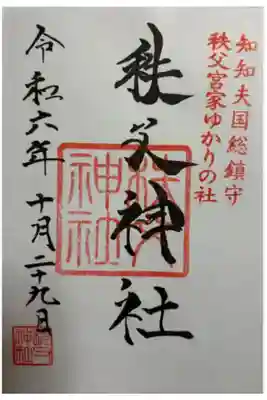 知知夫国総鎮守
秩父宮家ゆかりの社
秩父神社
令和六年 十月二十九日
秩父
神社